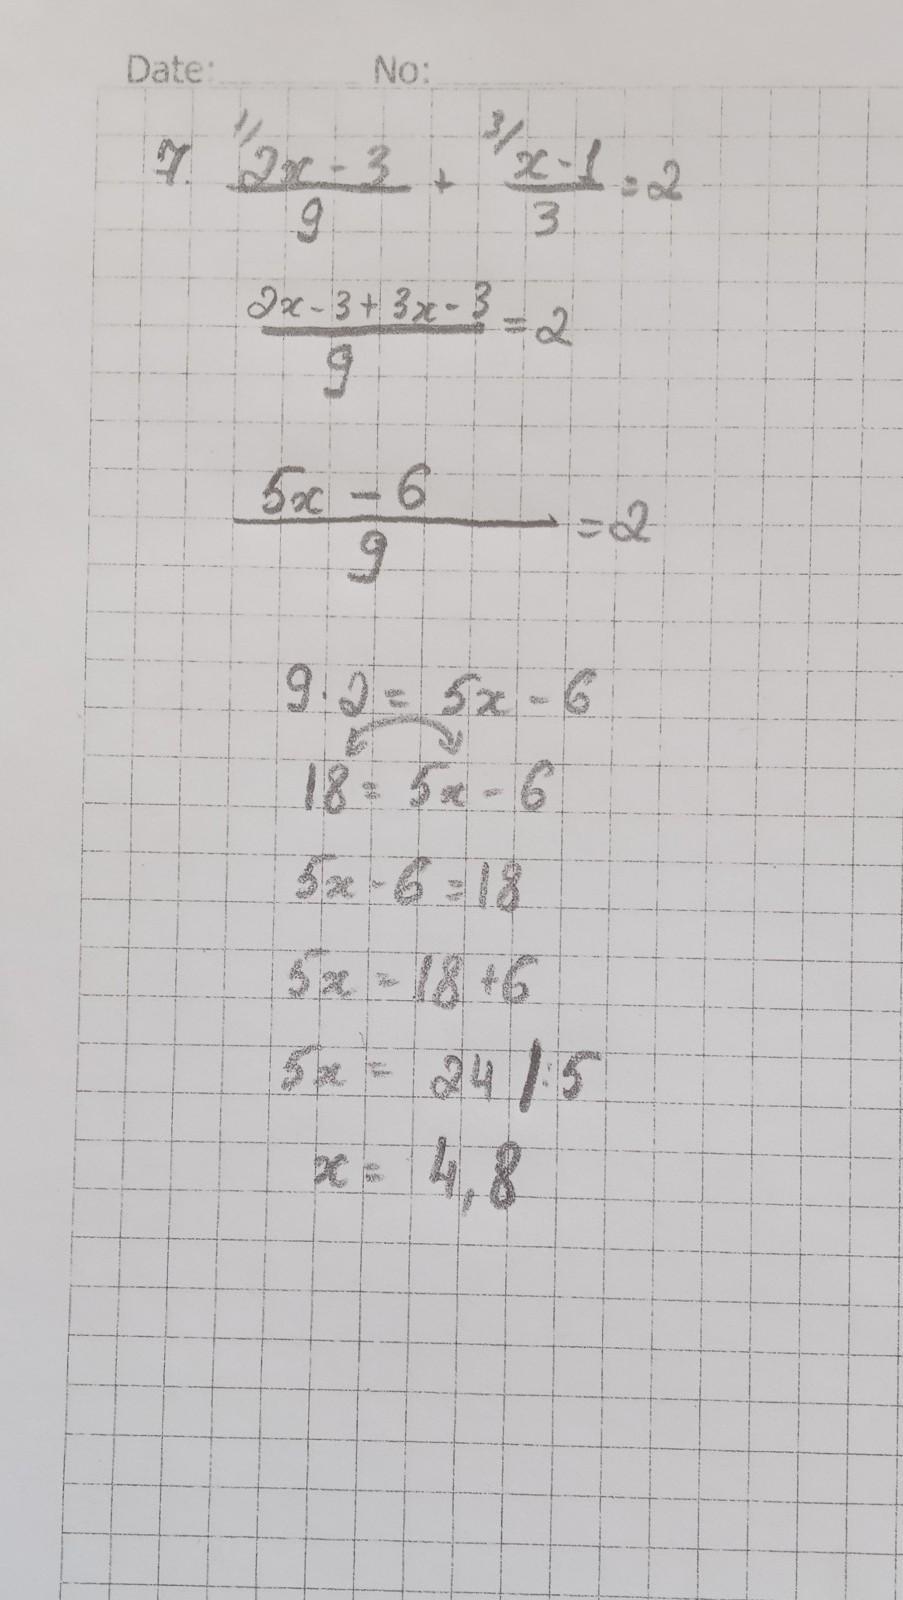 Date: No:
7. 1/ 2x - 3 / 9 + 3/ x - 1 / 3 = 2
2x - 3 + 3x - 3 / 9 = 2
5x - 6 / 9 = 2
9 · 2 = 5x - 6
18 = 5x - 6
5x - 6 = 18
5x = 18 + 6
5x = 24 /:5
x = 4,8